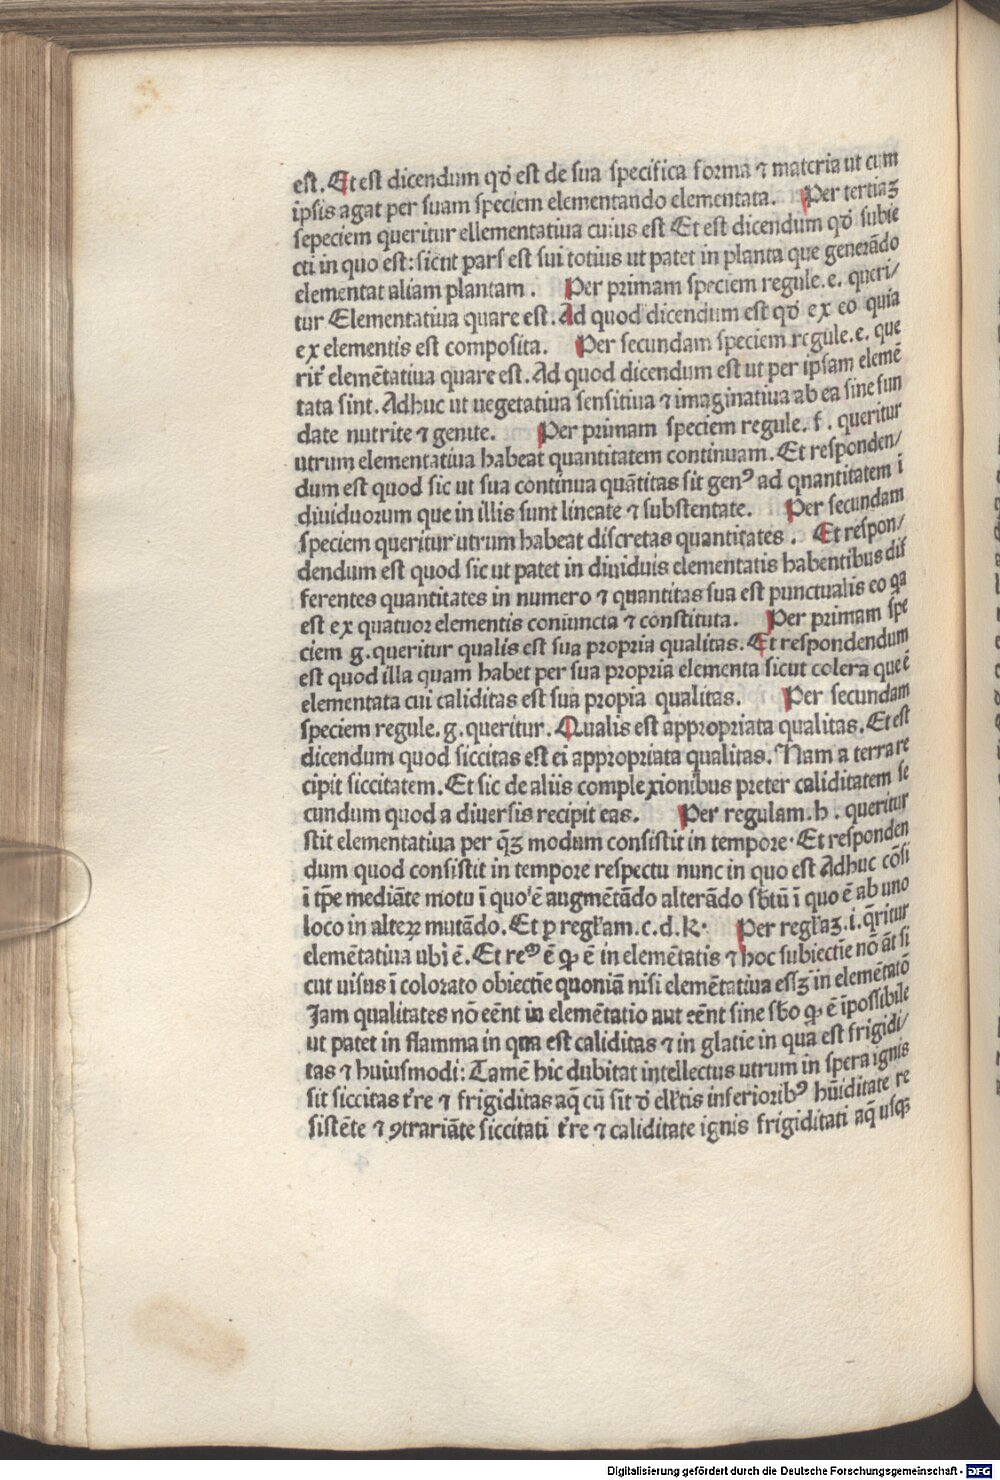 est. Et est dicendum qd̕ est de sua specifica forma ⁊ materia ut cum
ipsis agat per suam speciem elementando elementata. Per tertiaꝫ
sepeciem queritur ellementatiua cuius est Et est dicendum qd̕ subie
cti in quo est: sicut pars est sui totius ut patet in planta que generādo
elementat aliam plantam. Per primam speciem regule. e. queri/
tur Elementatiua quare est. Ad quod dicendum est qd̕ ex eo quia
ex elementis est composita. Per secundam speciem regule. e. que
rit̕ elemētatiua quare est. Ad quod dicendum est ut per ipsam elemē
tata sint. Adhuc ut uegetatiua sensitiua ⁊ imaginatiua ab ea sine fun
date nutrite ⁊ genite. Per primam speciem regule. f. queritur
utrum elementatiua habeat quantitatem continuam. Et responden/
dum est quod sic ut sua continua quātitas sit genꝰ ad qnantitatem ī
diuiduorum que in illis sunt lineate ⁊ substentate. Per secundam
speciem queritur utrum habeat discretas quantitates. Et respon/
dendum est quod sic ut patet in diuiduis elementatis habentibus dif
ferentes quantitates in numero ⁊ quantitas sua est punctualis eo qa
est ex quatuor elementis coniuncta ⁊ constituta. Per primam spe
ciem g. queritur qualis est sua propria qualitas. Et respondendum
est quod illa quam habet per sua propria elementa sicut colera que ē
elementata cui caliditas est sua propia qualitas. Per secundam
speciem regule. g. queritur. Qualis est appropriata qualitas. Et est
dicendum quod siccitas est ei appropriata qualitas. Nam a terra re
cipit siccitatem. Et sic de aliis complexionibus preter caliditatem se
cundum quod a diuersis recipit eas. Per regulam. h. queritur
stit elementatiua per qꝫ̄ modum consistit in tempore. Et responden
dum quod consistit in tempore respectu nunc in quo est Adhuc cōsi
ī tp̄e mediāte motu ī quo ē augmētādo alterādo sb̄tū ī quo ē ab uno
loco in alteꝝ mutādo. Et ꝑ regl̄am. c. d. k. Per regl̄aꝫ. i. q̄ritur
elemētatiua ubi ē. Et reꝰ ē ꝙ ē in elemētatis ⁊ hoc subiectīe nō āt si
cut uisus ī colorato obiectīe quoniā nisi elemētatiua essꝫ in elemētatō
Jam qualitates nō eēnt in elemētatio aut eēnt sine sb̄o ꝙ ē īpossibile
ut patet in flamma in qua est caliditas ⁊ in glatie in qua est frigidi/
tas ⁊ huiusmodi: Tamē hic dubitat intellectus utrum in spera ignis
sit siccitas t̄re ⁊ frigiditas aq̄ cū sīt d̕ el̄tis inferioribꝰ hūiditate re
sistēte ⁊ ꝯtrariāte siccitati t̄re ⁊ caliditate ignis frigiditati aq̄ usqꝫ
Digitalisierung gefördert durch die Deutsche Forschungsgemeinschaft - DFG